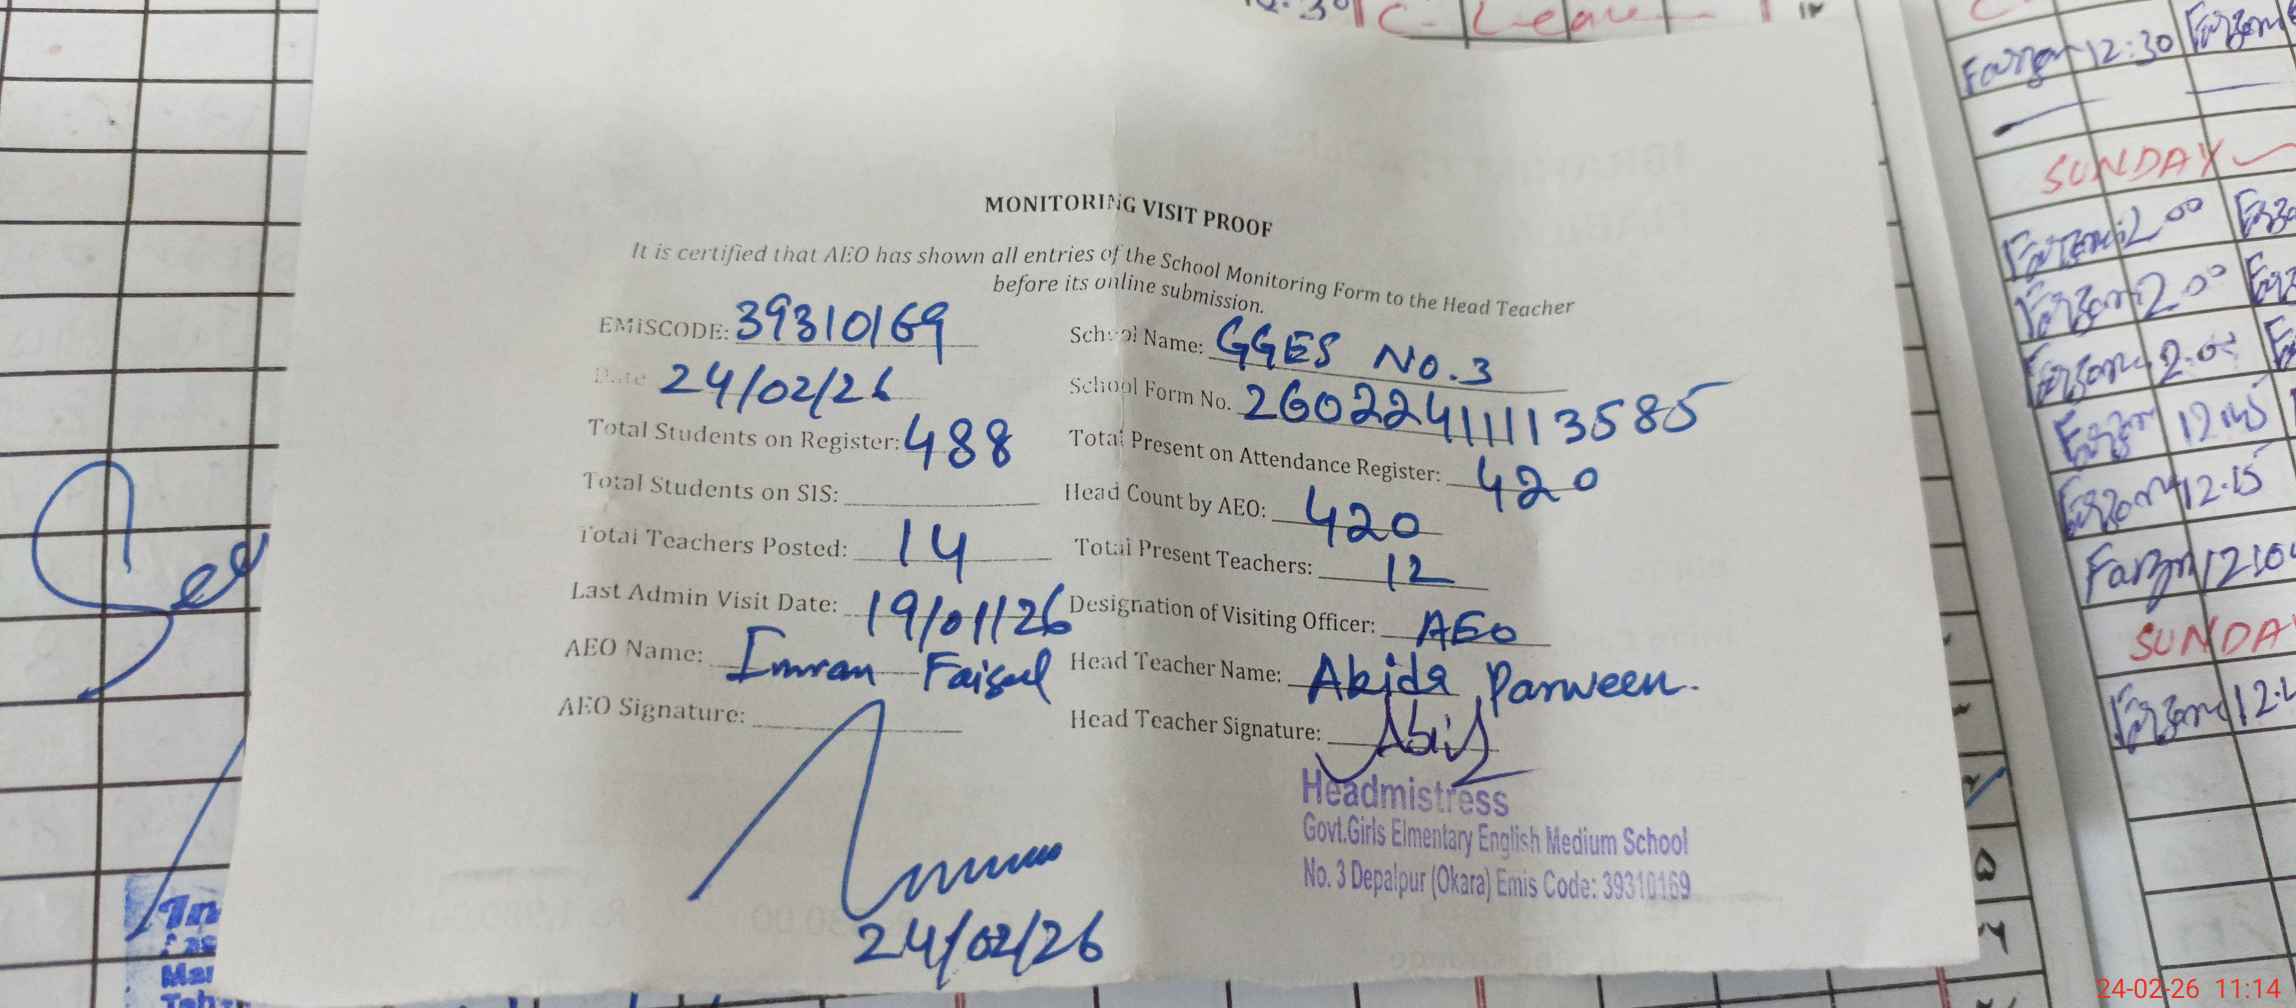 C-Leave
Farzan 12:30
SUNDAY
MONITORING VISIT PROOF
It is certified that AEO has shown all entries of the School Monitoring Form to the Head Teacher
before its online submission.
EMISCODE: 39310169
School Name: GGES No.3
Date 24/02/26
School Form No. 260224111113585
Total Students on Register: 488
Total Present on Attendance Register: 420
Total Students on SIS:
Head Count by AEO: 420
Total Teachers Posted: 14
Total Present Teachers: 12
Last Admin Visit Date: 19/01/26
Designation of Visiting Officer: AEO
AEO Name: Imran Faisal
Head Teacher Name: Abida Parween.
AEO Signature:
Head Teacher Signature:
24/02/26
Headmistress
Govt.Girls Elmentary English Medium School
No. 3 Depalpur (Okara) Emis Code: 39310169
2.00
12.15
SUNDAY
24-02-26 11:14